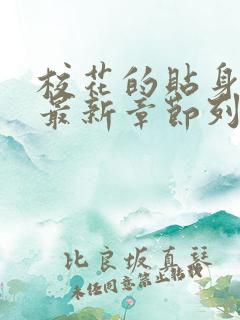 校花的贴身
最新章节列
比良坂真琴
未经同意禁止转载